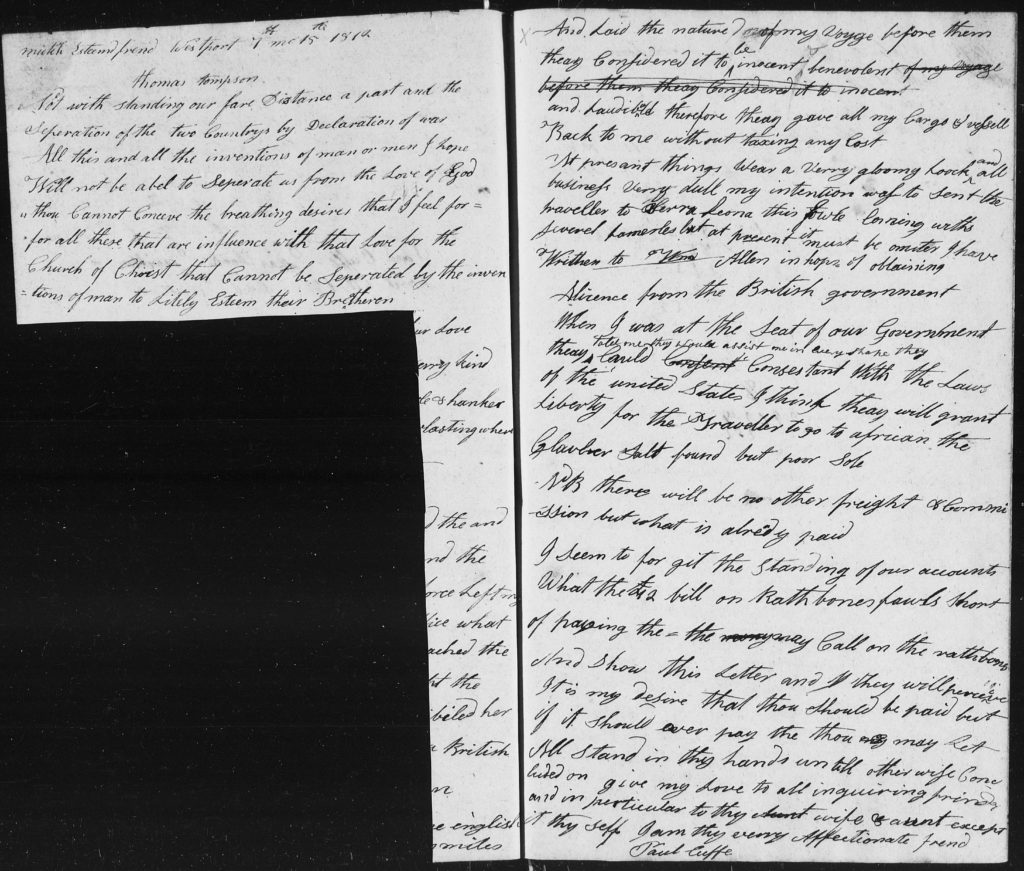 much Esteemd frend Westport 7th mo 15th 1812
thomas tompson
Not with standing our fare Distance a part and the
Seperation of the two Countrys by Declaration of war
All this and all the inventions of man or men I hope
Will not be abel to Seperate us from the Love of God
thou Cannot Conceve the breathing desires that I feel for =
for all these that are influence with that Love for the
Church of Christ that Cannot be Seperated by the inven
= tions of man to Litely Estem their Bretheren
our Love
verry kind
& hanker
lasting wher
d the and
nd the
orce Left my
what
ached the
the
her
British
english
miles
And Laid the nature of my Voyge before them
theay Considered it to be inocent, benevolent of my Voyage
before them theay Considered it to inocent
and Laudible therefore theay gave all my Cargo & vessell
Back to me without taxing any Cost
At presant things Wear a Verry gloomy Loock and all
business Verry dull my intention was to Sent the
traveller to Serra Leona this fowle Coming with
Several famerles but at present it must be omited I have
Written to Wm Allen in hops of obtaining
Alicence from the British government
When I was at the Seat of our Government
theay told me they would assist me in every shape they
Could Consent Consestant With the Laws
of the united States I think theay will grant
Liberty for the Traveller to go to african the
Glauber Salt found but poor Sole
NB there will be no other freight & Commi
ssion but what is alredy paid
I Seem to for git the Standing of our accounts
What the bill on Rathbones fawls Short
of paying the = the may Call on the rathbons
And Show this Letter and they will perceive
It is my desire that thou Should be paid but
if it Should over pay the thou may Let
All Stand in thy hands untill other wise Conc
luded on give my Love to all inquiring frinds
and in perticular to thy Aunt wife & aunt except
it thy Self I am thy verry Affectionate frend
Paul Cuffe